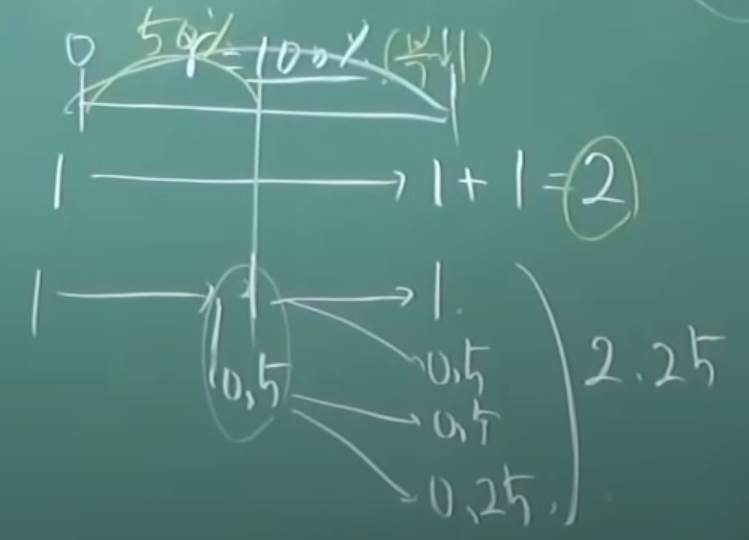 0 50% = 100%
1 → 1 + 1 = 2
1 → 1 → 1
0.5
0.5 2.25
0.5
0.25